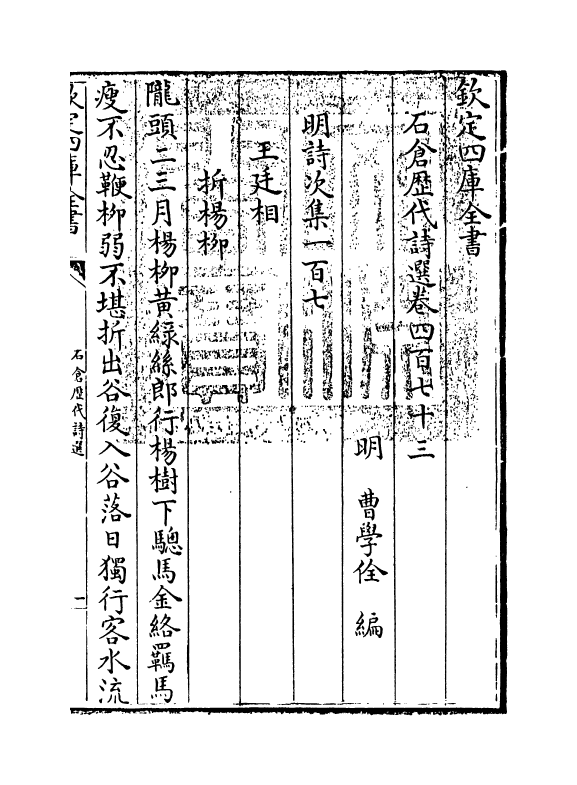 欽定四庫全書
石倉歴代詩選卷四百七十三
明　曹學佺　編
明詩次集一百七
王廷相
折楊柳
隴頭二三月楊柳黄綠絲郎行楊樹下驄馬金絡羈馬
瘦不忍鞭柳弱不堪折出谷復入谷落日獨行客水流
欽定四庫全書
石倉歴代詩選
一